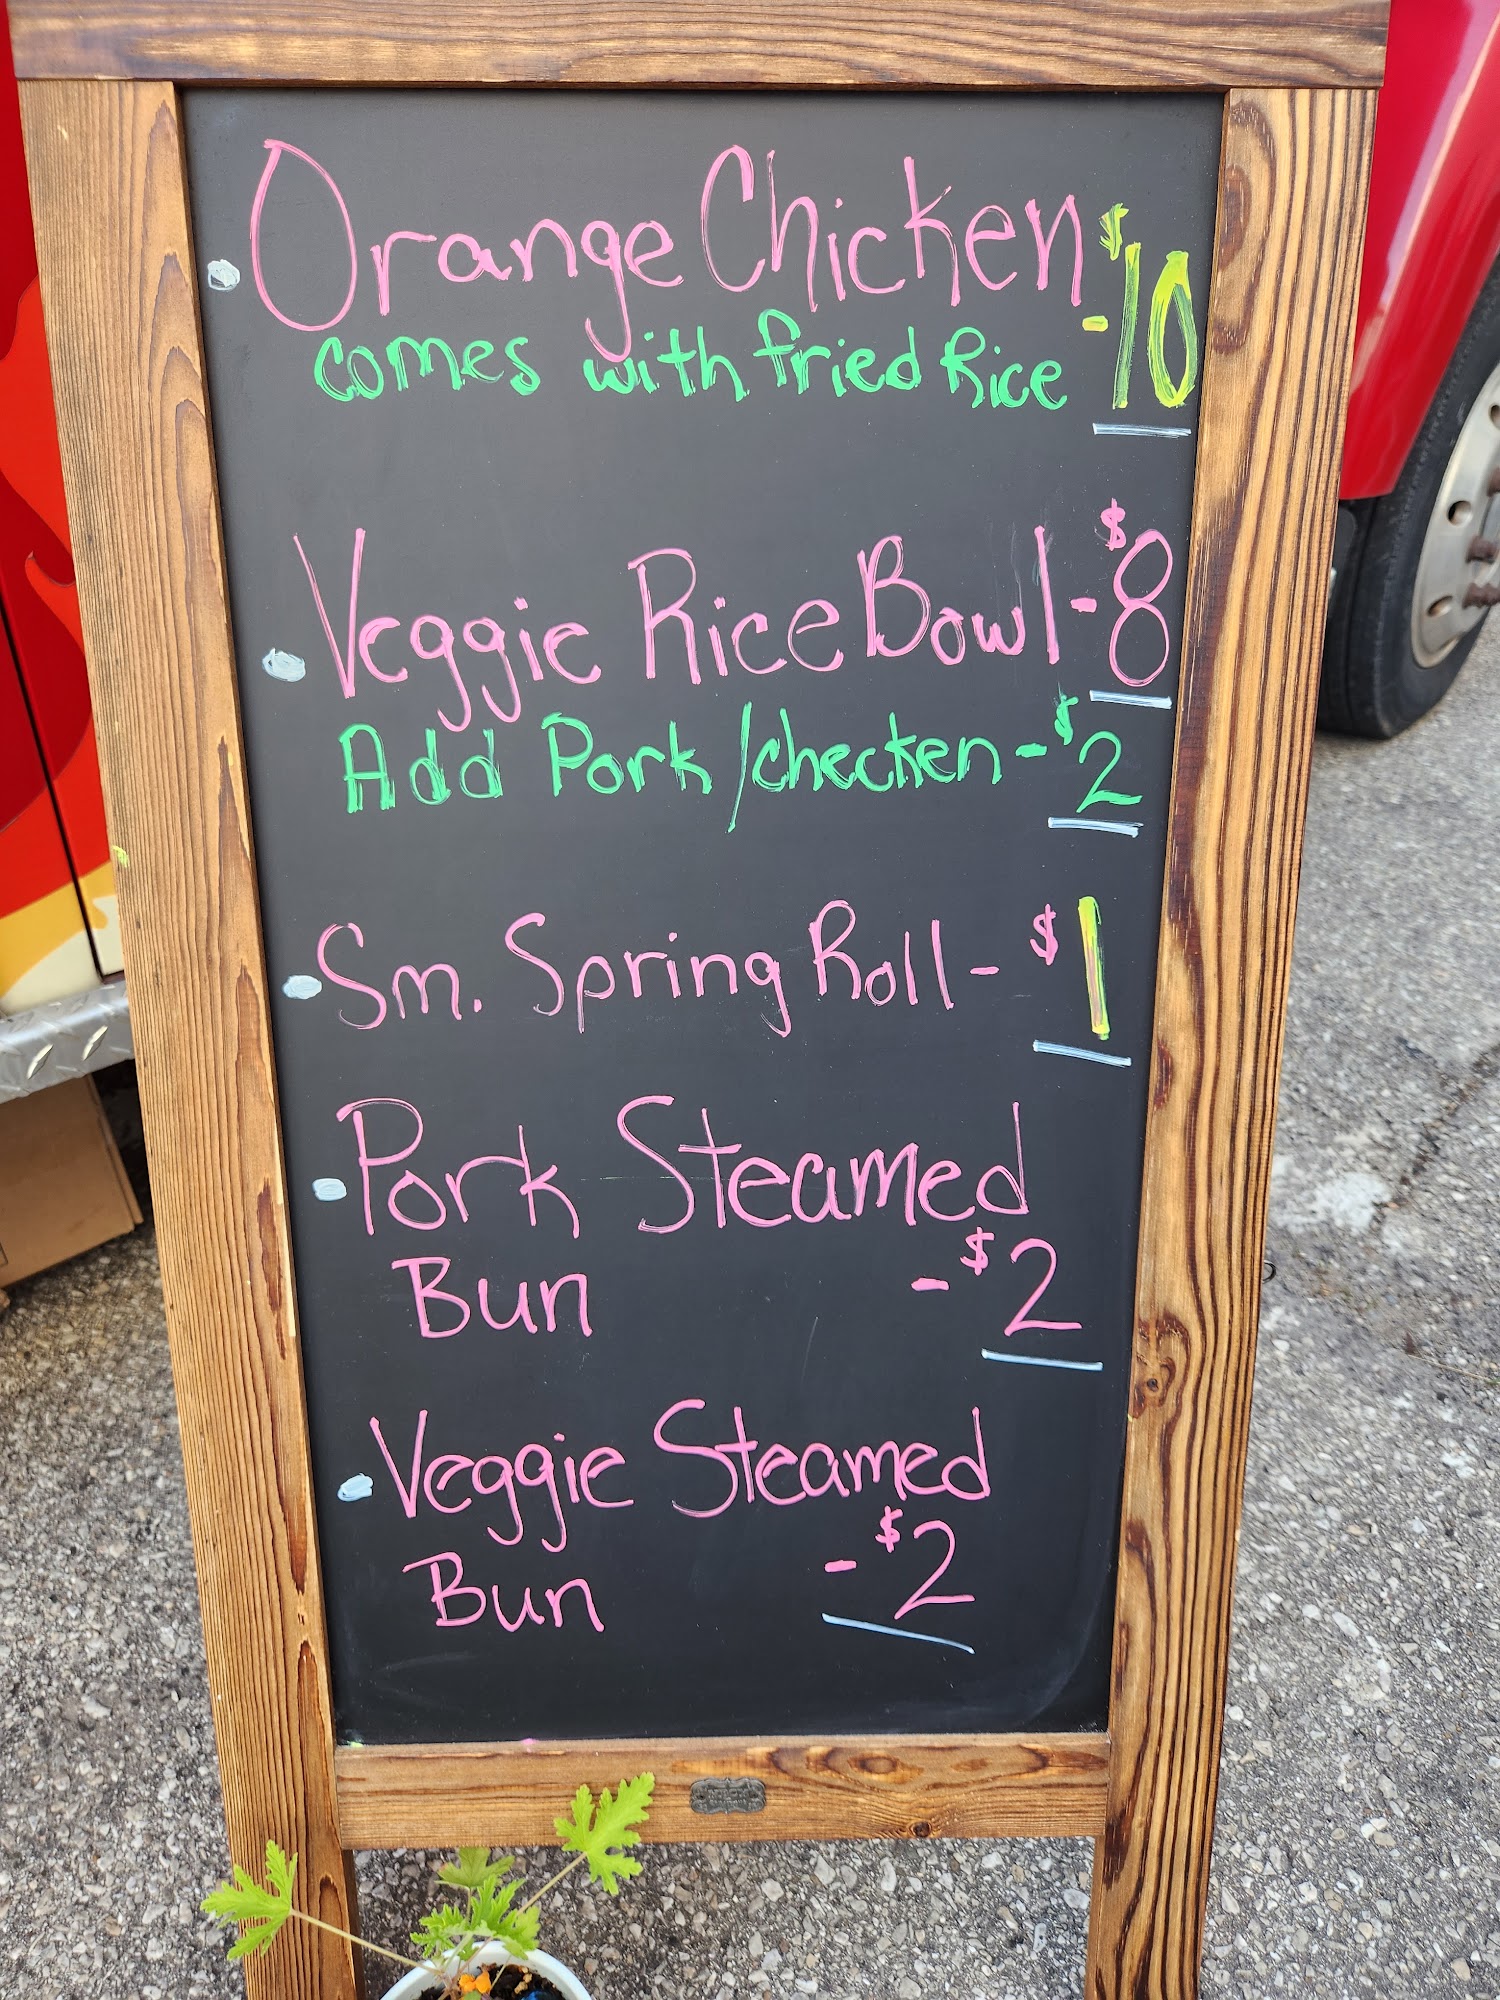 Orange Chicken - $10
comes with fried Rice
Veggie Rice Bowl - $8
Add Pork/checken - $2
Sm. Spring Roll - $1
Pork Steamed
Bun - $2
Veggie Steamed
Bun - $2